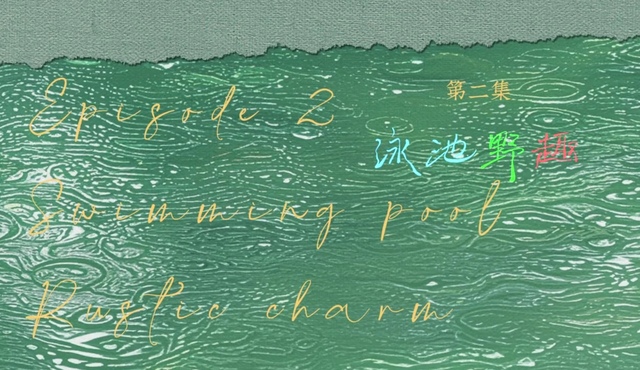 Episode 2
第二集
泳池野趣
Swimming pool
Rustic charm